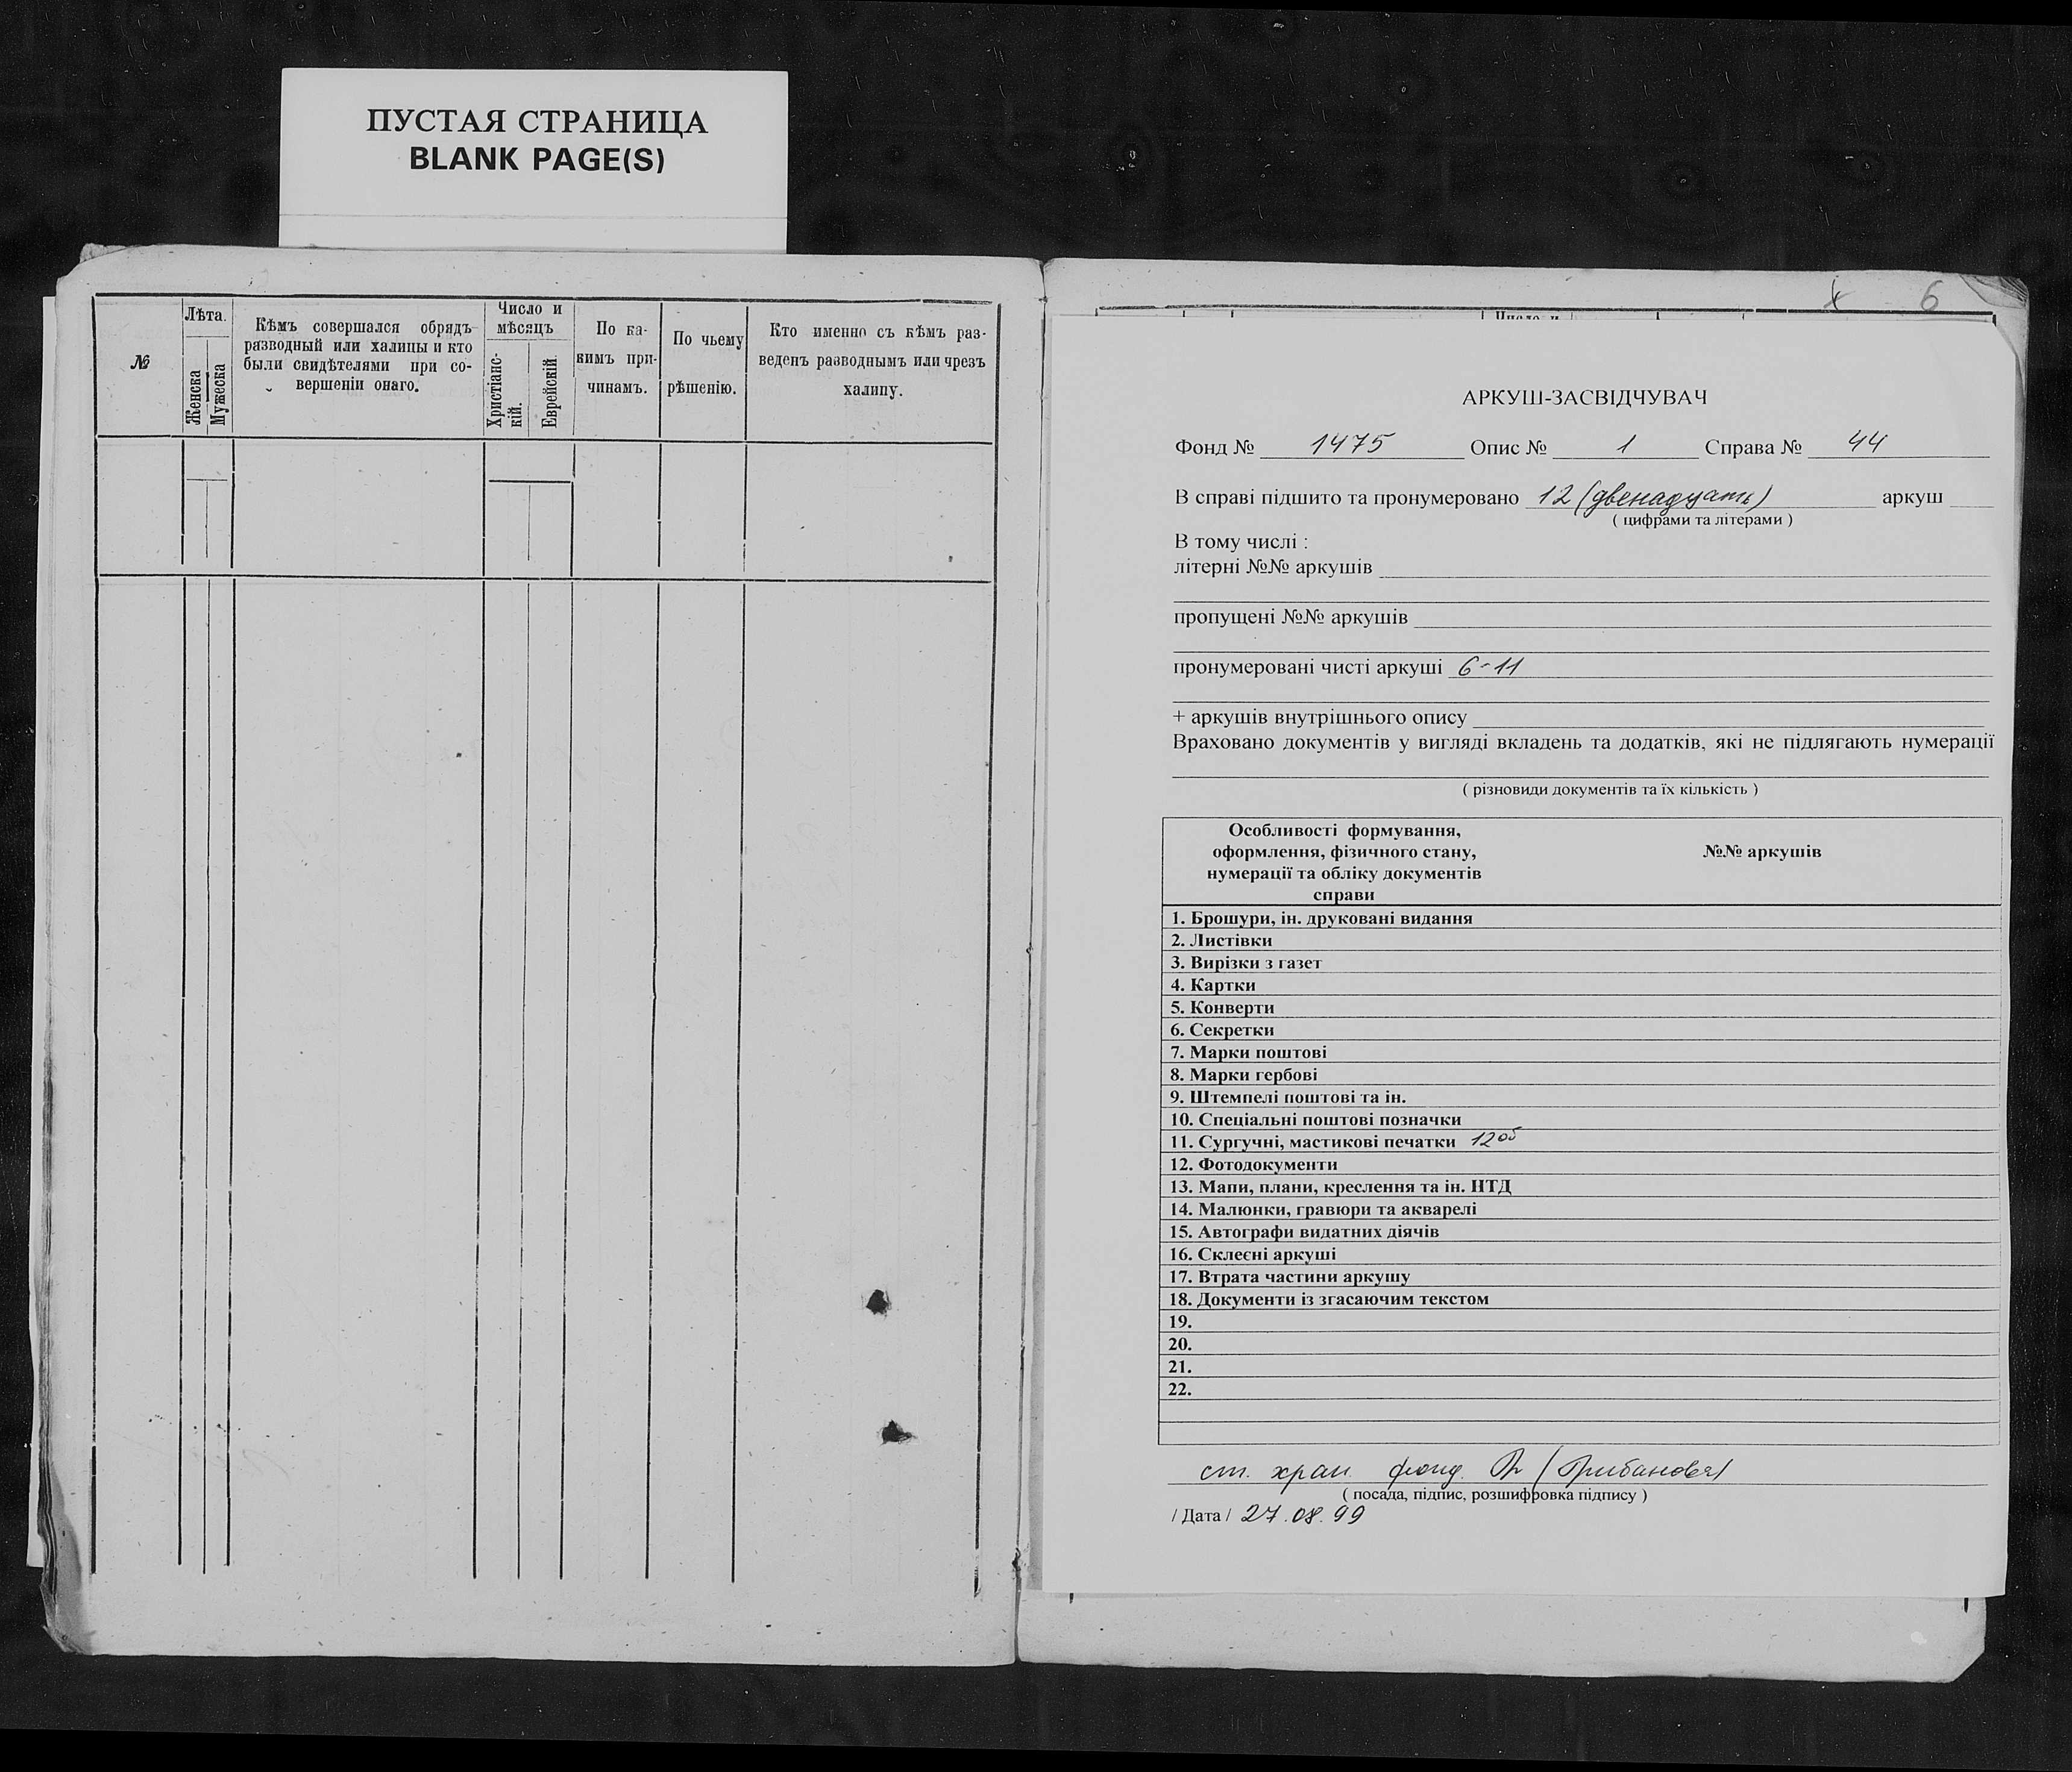 ПУСТАЯ СТРАНИЦА
BLANK PAGE(S)
№
Лѣта.
Женска
Мужеска
Кѣмъ совершался обрядъ
разводный или халицы и кто
были свидѣтелями при со-
вершеніи онаго.
Число и
мѣсяцъ
Христіанс-
кій.
Еврейскій.
По ка-
кимъ при-
чинамъ.
По чьему
рѣшенію.
Кто именно съ кѣмъ раз-
веденъ разводнымъ или чрезъ
халицу.
6
Число и
АРКУШ-ЗАСВІДЧУВАЧ
Фонд № 1475 Опис № 1 Справа № 44
В справі підшито та пронумеровано 12 (двенадцать) аркуш
( цифрами та літерами )
В тому числі :
літерні №№ аркушів
пропущені №№ аркушів
пронумеровані чисті аркуші 6-11
+ аркушів внутрішнього опису
Враховано документів у вигляді вкладень та додатків, які не підлягають нумерації
( різновиди документів та їх кількість )
Особливості формування,
оформлення, фізичного стану,
нумерації та обліку документів
справи
№№ аркушів
1. Брошури, ін. друковані видання
2. Листівки
3. Вирізки з газет
4. Картки
5. Конверти
6. Секретки
7. Марки поштові
8. Марки гербові
9. Штемпелі поштові та ін.
10. Спеціальні поштові позначки
11. Сургучні, мастикові печатки 12об
12. Фотодокументи
13. Мапи, плани, креслення та ін. НТД
14. Малюнки, гравюри та акварелі
15. Автографи видатних діячів
16. Склеєні аркуші
17. Втрата частини аркушу
18. Документи із згасаючим текстом
19.
20.
21.
22.
ст. хран. фонд. (Грибанова)
( посада, підпис, розшифровка підпису )
/ Дата / 27.08.99